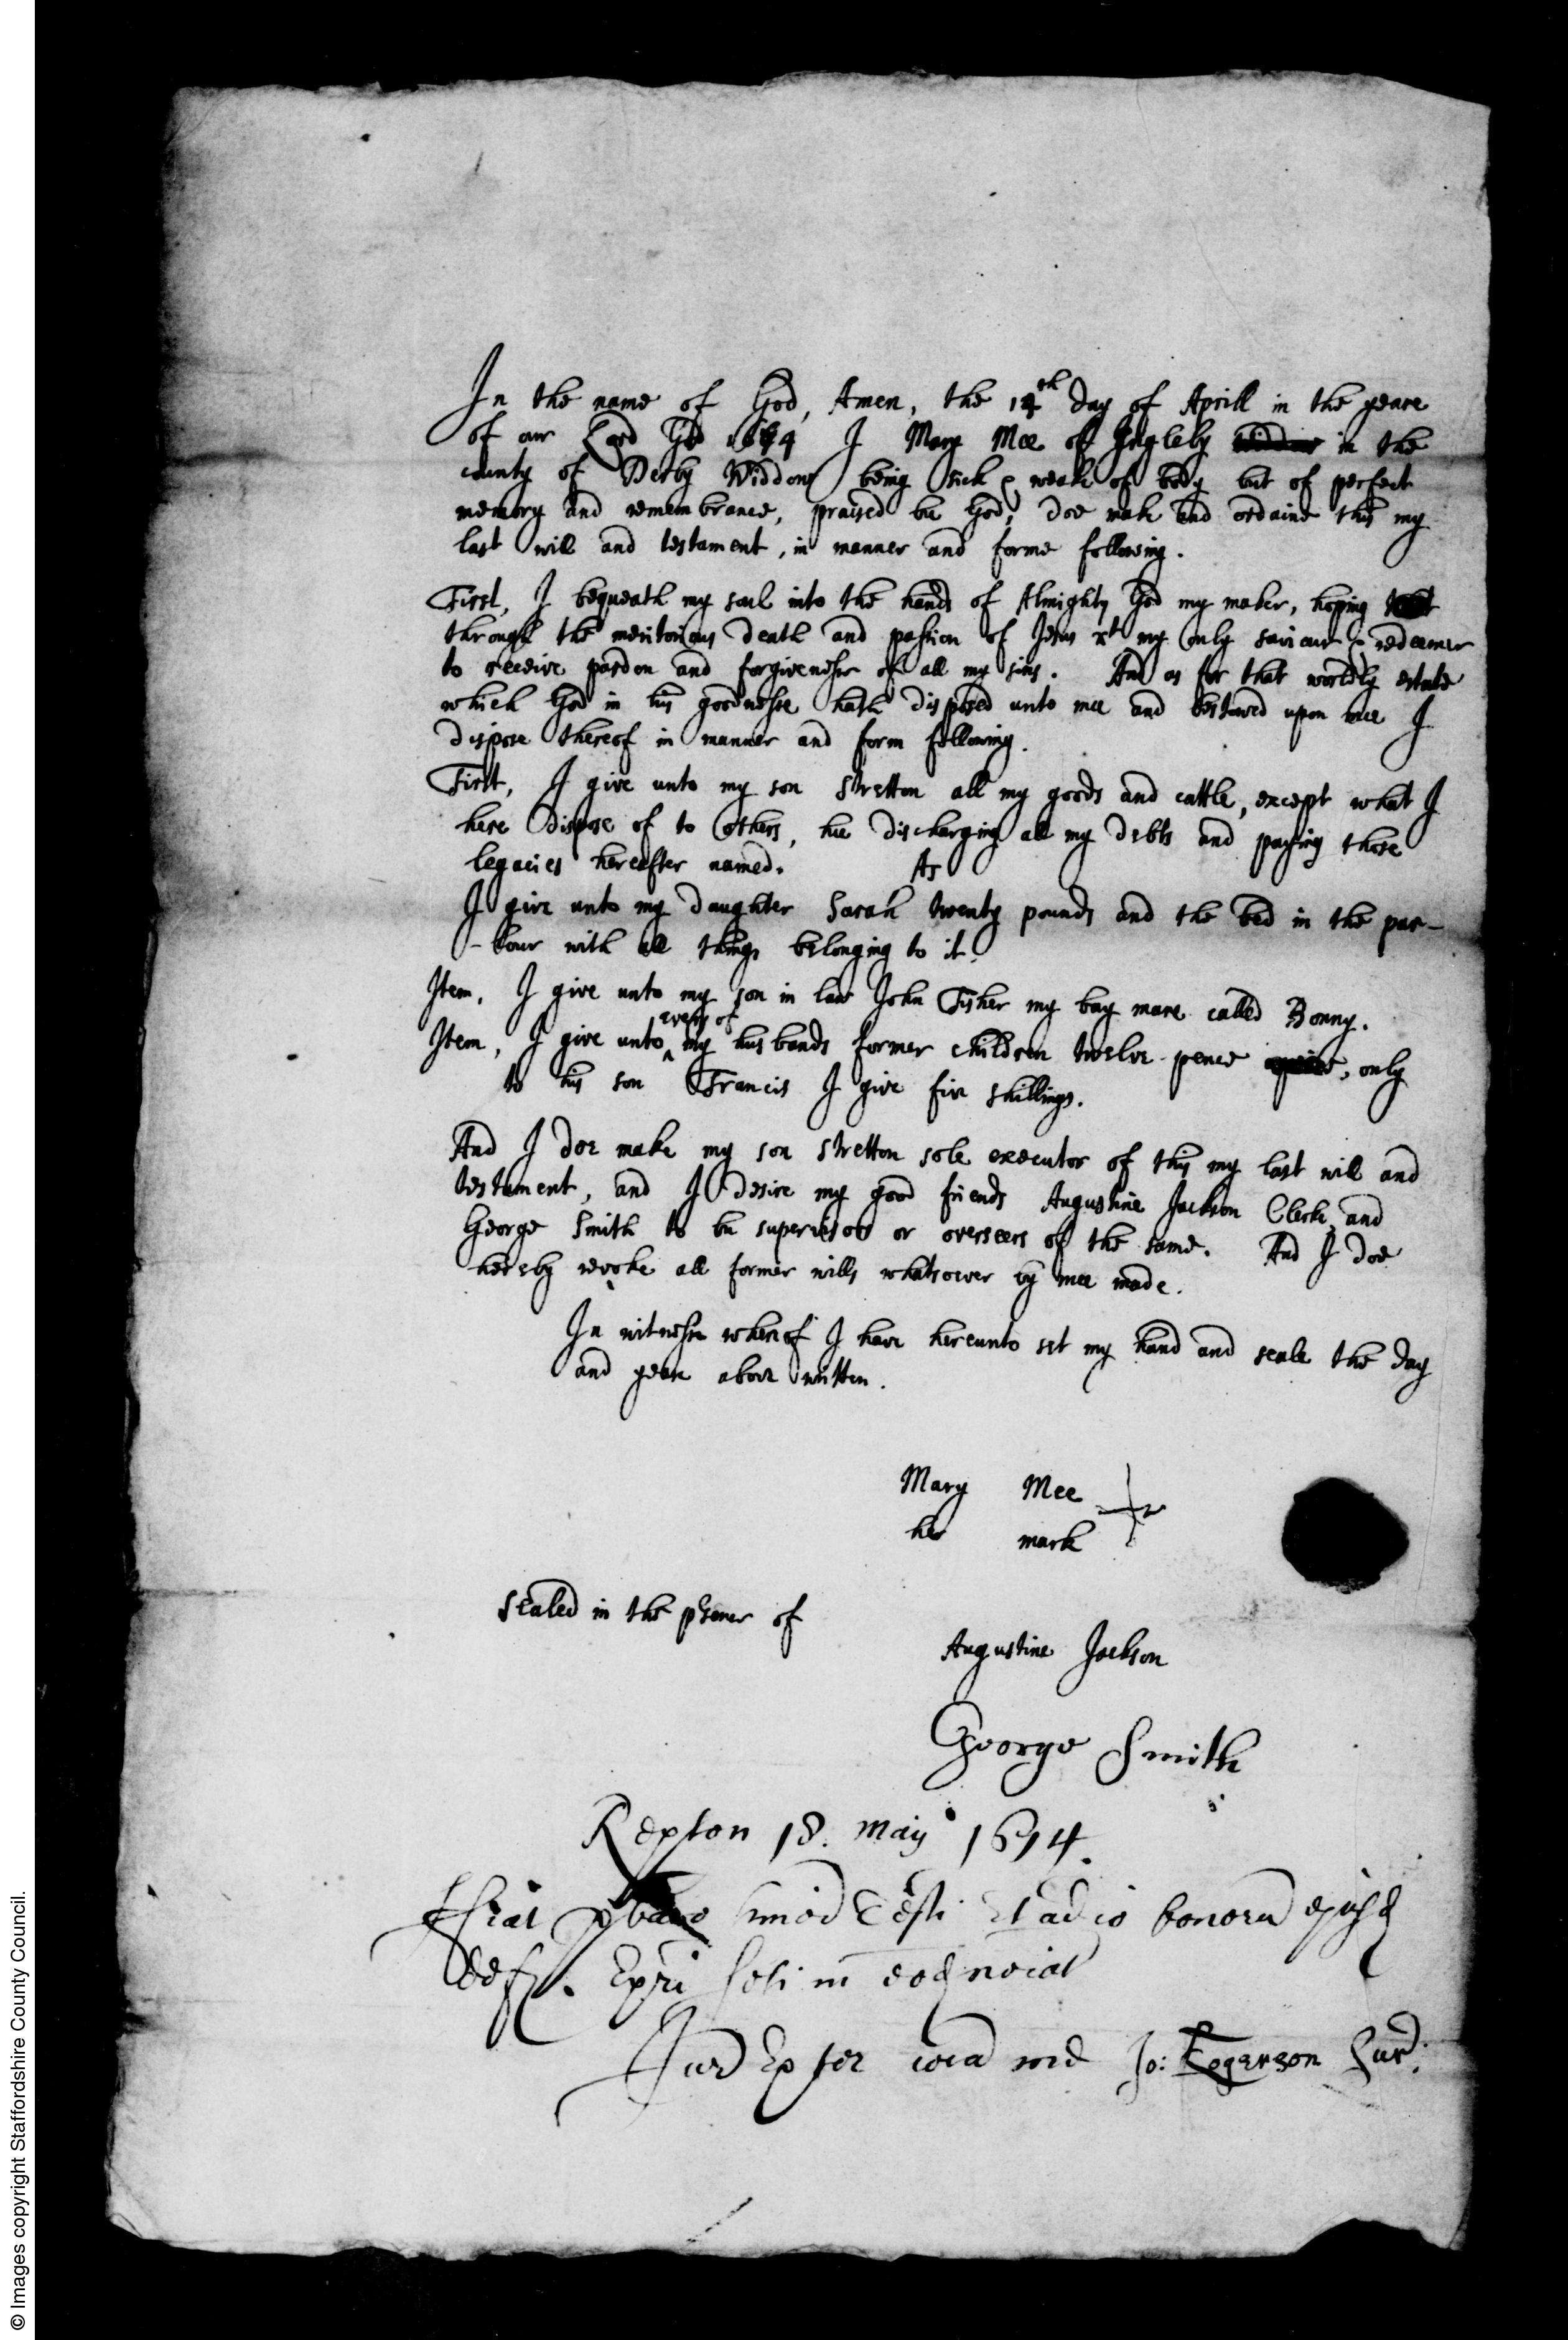 In the name of God, Amen, the 14th day of Aprill in the yeare
of our Lord God 1674 I Mary Mee of Ingleby widdow in the
county of Derby Widdow being sick & weak of body but of perfect
memory and remembrance, praised be God, doe make and ordaine this my
last will and testament, in manner and forme following.
First, I bequeath my soul into the hands of Almighty God my maker, hoping
through the meritorious death and passion of Jesus xt my only saviour & redeemer
to receive pardon and forgivenesse of all my sins. And as for that worldly estate
which God in his goodnesse hath disposed unto mee and bestowed upon mee I
dispose thereof in manner and form following.
First, I give unto my son Stretton all my goods and cattle, except what I
here dispose of to others, hee discharging all my debts and paying those
legacies hereafter named. As
I give unto my daughter Sarah twenty pounds and the bed in the par-
-lour with all things belonging to it.
Item, I give unto my son in law John Fisher my bay mare called Bonny.
Item, I give unto every of my husbands former children twelve pence, only
to his son Francis I give five shillings.
And I doe make my son Stretton sole executor of this my last will and
testament, and I desire my good friends Augustine Jackson Clerk, and
George Smith to be supervisors or overseers of the same. And I doe
hereby revoke all former wills whatsoever by mee made.
In witnesse whereof I have hereunto set my hand and seale the day
and yeare above written.
Mary Mee
her mark
Sealed in the psence of
Augustine Jackson
George Smith
Repton 18. Maij 1674.
bonoru
Exri in eod noiat
Jurd Exper cora me Jo: Edgerson Surr.
© Images copyright Staffordshire County Council.